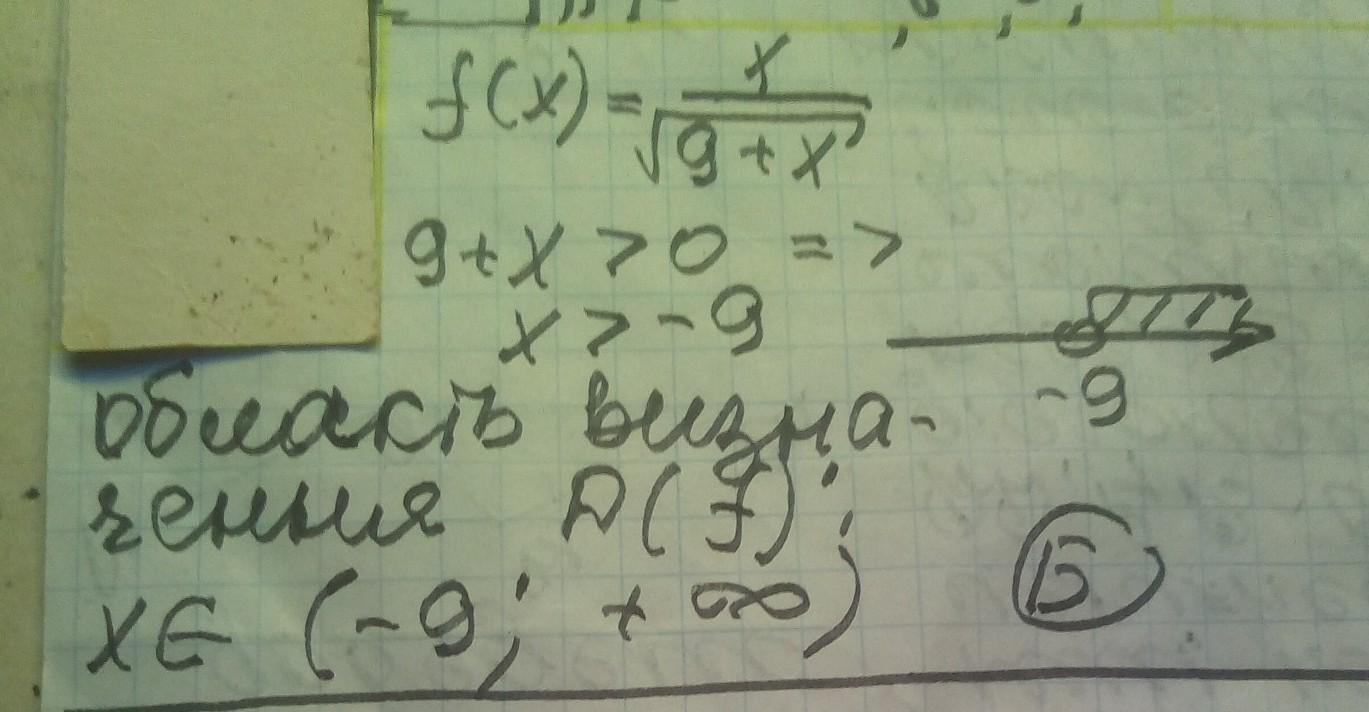 f(x) = x / √(9 + x)
9 + x > 0 =>
x > -9
-9
область визна-
чення D(f):
x ∈ (-9; + ∞)
Б